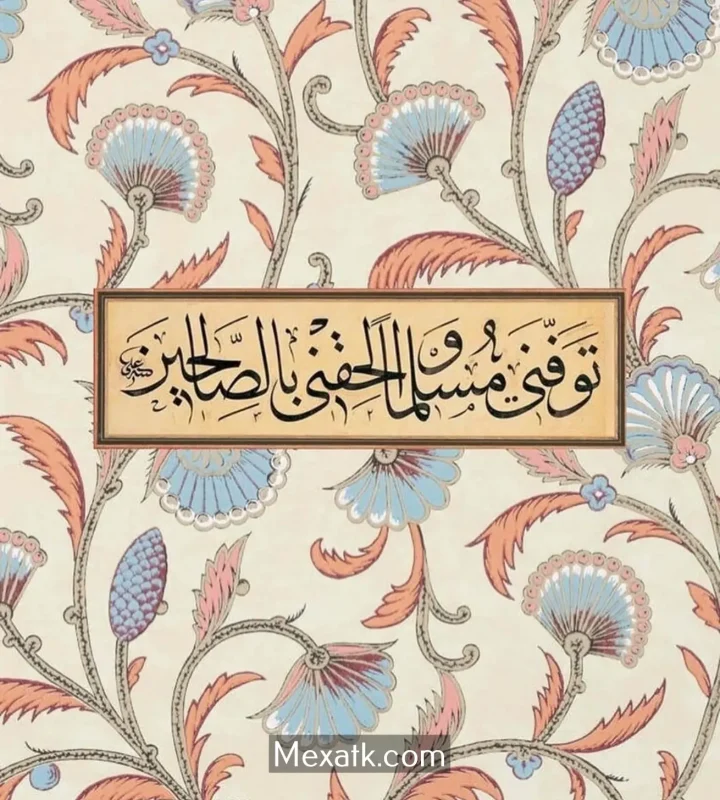 تَوَفَّنِي مُسْلِمًا وَأَلْحِقْنِي بِالصَّالِحِينَ
Mexatk.com